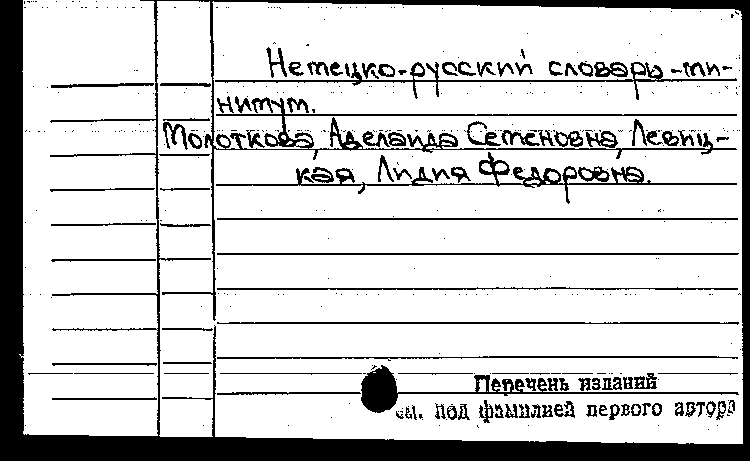 Немецко-русский словарь-ми-
нимум.
Молоткова, Аделаида Семеновна, Левиц-
кая, Лидия Федоровна.
Перечень изданий
см. под фамилией первого автора